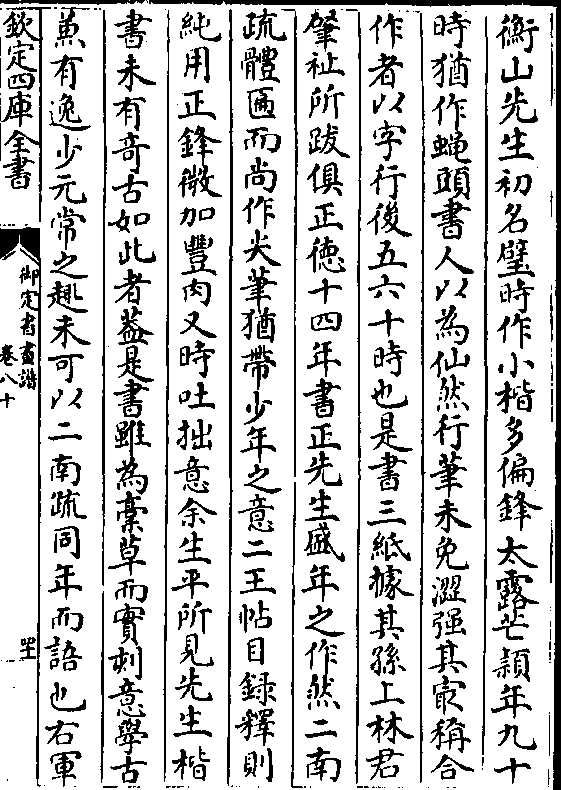 衡山先生初名璧時作小楷多偏鋒太露芒穎年九十
時猶作蝇頭書人以為仙然行筆未免澀强其㝡稱合
作者以字行後五六十時也是書三紙據其孫上林君
肇祉所跋俱正徳十四年書正先生盛年之作然二南
疏體匾而尚作尖筆猶帶少年之意二王帖目錄釋則
純用正鋒微加豐肉又時吐拙意余生平所見先生楷
書未有奇古如此者葢是書雖為稾草而實刻意學古
兼有逸少元常之趣未可以二南疏同年而語也右軍
欽定四庫全書
御定書畫譜
卷八十